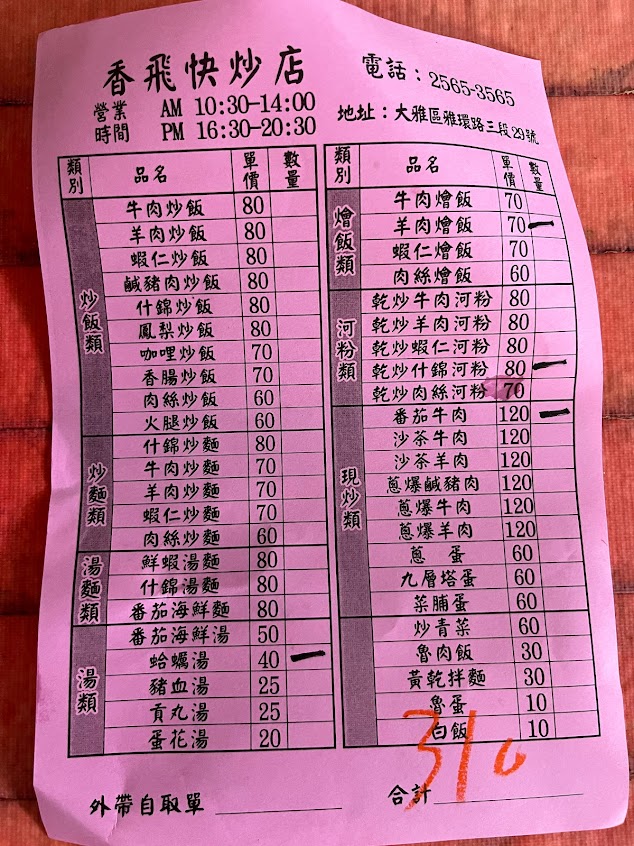 香飛快炒店
電話：2565-3565
營業時間 AM 10:30-14:00
PM 16:30-20:30
地址：大雅區雅環路三段29號
類別 品名 單價 數量
炒飯類
牛肉炒飯 80
羊肉炒飯 80
蝦仁炒飯 80
鹹豬肉炒飯 80
什錦炒飯 80
鳳梨炒飯 80
咖哩炒飯 70
香腸炒飯 70
肉絲炒飯 60
火腿炒飯 60
炒麵類
什錦炒麵 80
牛肉炒麵 70
羊肉炒麵 70
蝦仁炒麵 70
肉絲炒麵 60
湯麵類
鮮蝦湯麵 80
什錦湯麵 80
番茄海鮮麵 80
湯類
番茄海鮮湯 50
蛤蠣湯 40 一
豬血湯 25
貢丸湯 25
蛋花湯 20
類別 品名 單價 數量
燴飯類
牛肉燴飯 70
羊肉燴飯 70 一
蝦仁燴飯 70
肉絲燴飯 60
河粉類
乾炒牛肉河粉 80
乾炒羊肉河粉 80
乾炒蝦仁河粉 80
乾炒什錦河粉 80 一
乾炒肉絲河粉 70
現炒類
番茄牛肉 120 一
沙茶牛肉 120
沙茶羊肉 120
蔥爆鹹豬肉 120
蔥爆牛肉 120
蔥爆羊肉 120
蔥蛋 60
九層塔蛋 60
菜脯蛋 60
炒青菜 60
魯肉飯 30
黃乾拌麵 30
魯蛋 10
白飯 10
外帶自取單
合計 310